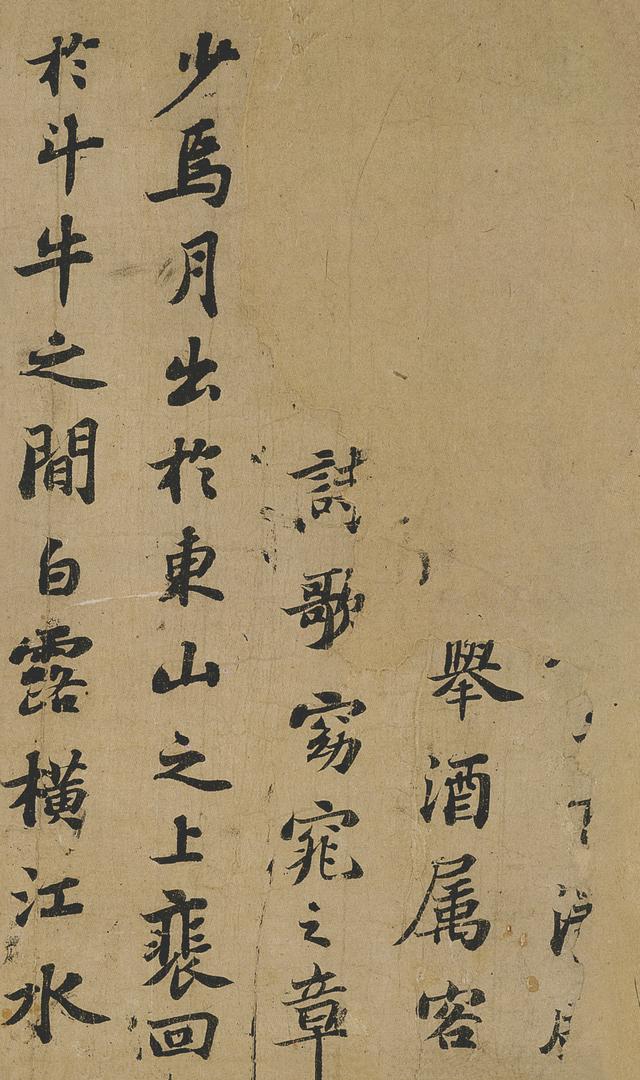 舉酒属客
詩歌窈窕之章
少焉月出於東山之上裴回
於斗牛之間白露橫江水